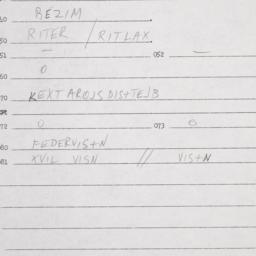 40 BEZIM
50 RITER / RITLAX
51 — 052 —
60 0
70 KEXT AROJS DIS+TEJB
72 0 073 0
80 FEDERVIS+N
81 XVIL VISN // VIS+N